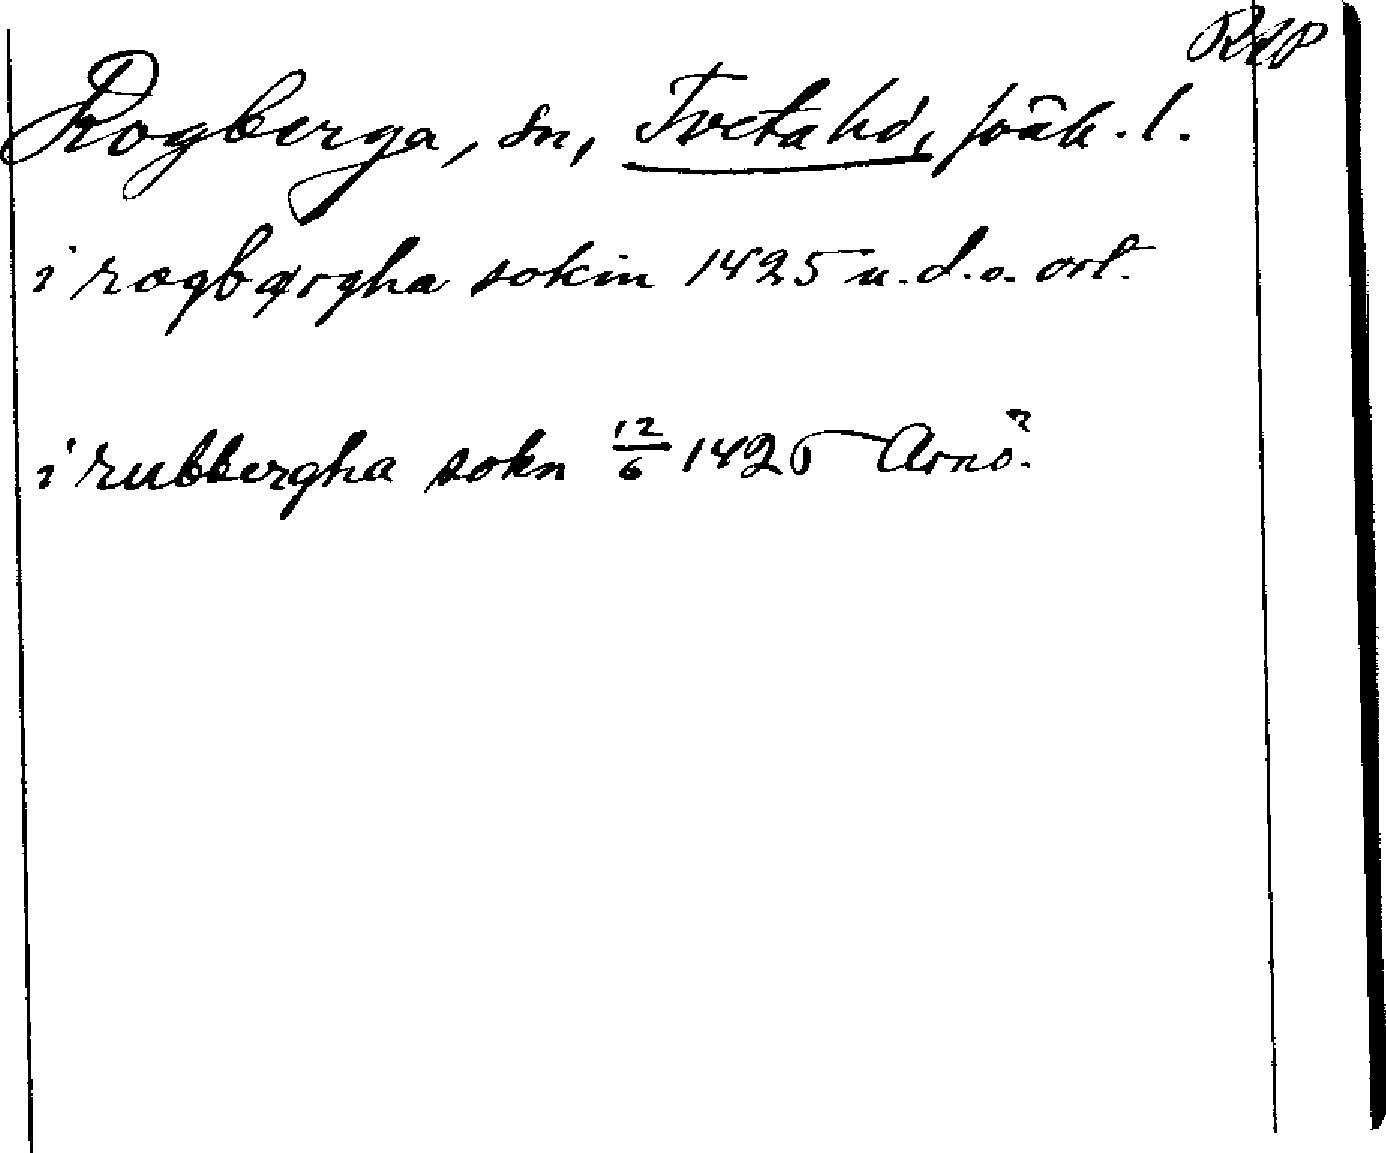 RAP
Rogberga, sn, Tveta hd, smål. l.
i rogbærgha sokin 1425 u. d. o. ort.
i rubbergha sokn 12/6 1425 Arnö?